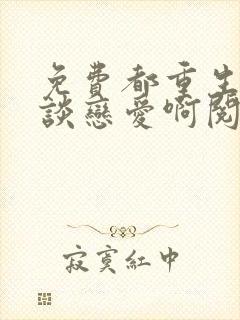 免費都重生
談戀愛啊閱
寂寞紅中